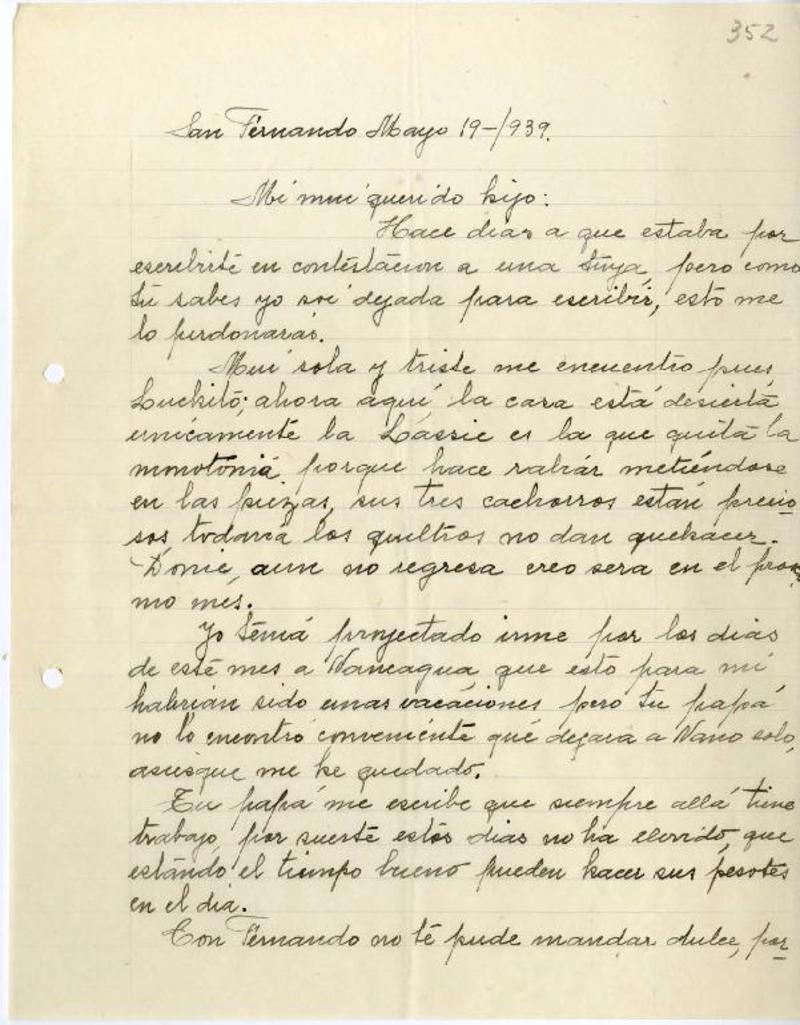 352
San Fernando Mayo 19-/939.
Mi mui querido hijo:
Hace dias a que estaba por
escribirte en contestacion a una tuya, pero como
tu sabes yo soi dejada para escribir, esto me
lo perdonarás.
Mui sola y triste me encuentro pues
Luchito; ahora aquí la casa está desierta
unicamente la Lassie es la que quita la
monotonia porque hace rabiar metiéndose
en las piezas, sus tres cachorros estan precio
sos, todavia los quiltros no dan quehacer.
Donie, aun no regresa creo sera en el
mo mes.
Yo tenia proyectado irme por los dias
de este mes a Nancagua, que esto para mi
habrian sido unas vacaciones pero tu papá
no lo encontró conveniente que dejara a Nano solo,
asiesque me he quedado.
Tu papá me escribe que siempre allá tiene
trabajo, por suerte estos dias no ha llovido, que
estando el tiempo bueno pueden hacer sus pesotes
en el dia.
Con Fernando no te pude mandar dulce, por